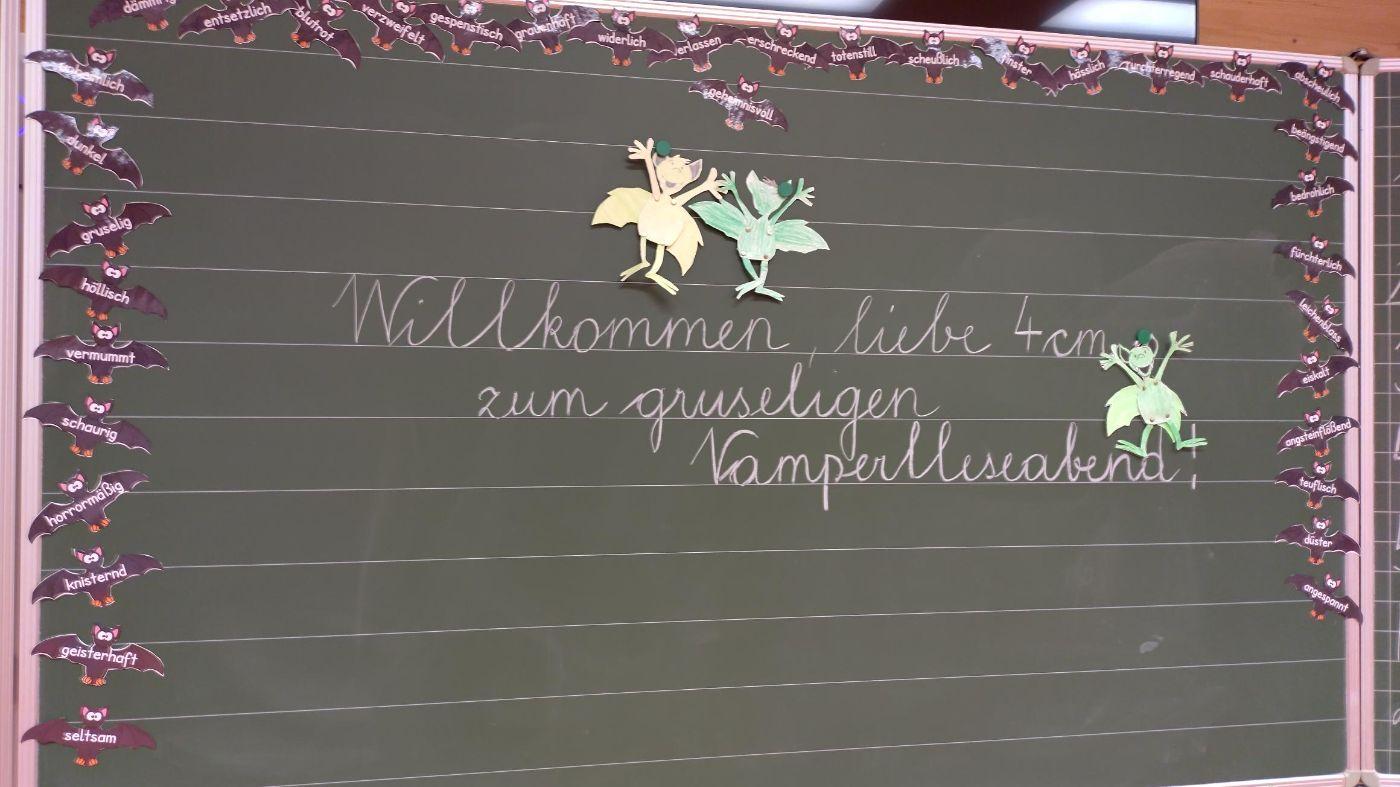 entsetzlich
blutrot
verzweifelt
gespenstisch
grauenhaft
widerlich
erschreckend
totenstill
scheußlich
hässlich
furchterregend
schauderhaft
abscheulich
geheimnisvoll
dunkel
gruselig
höllisch
vermummt
schaurig
horrormäßig
knisternd
geisterhaft
seltsam
Willkommen, liebe 4cm
zum gruseligen
Vamperlleseabend!
beängstigend
bedrohlich
fürchterlich
leichenblass
eiskalt
angsteinflößend
teuflisch
düster
angespannt